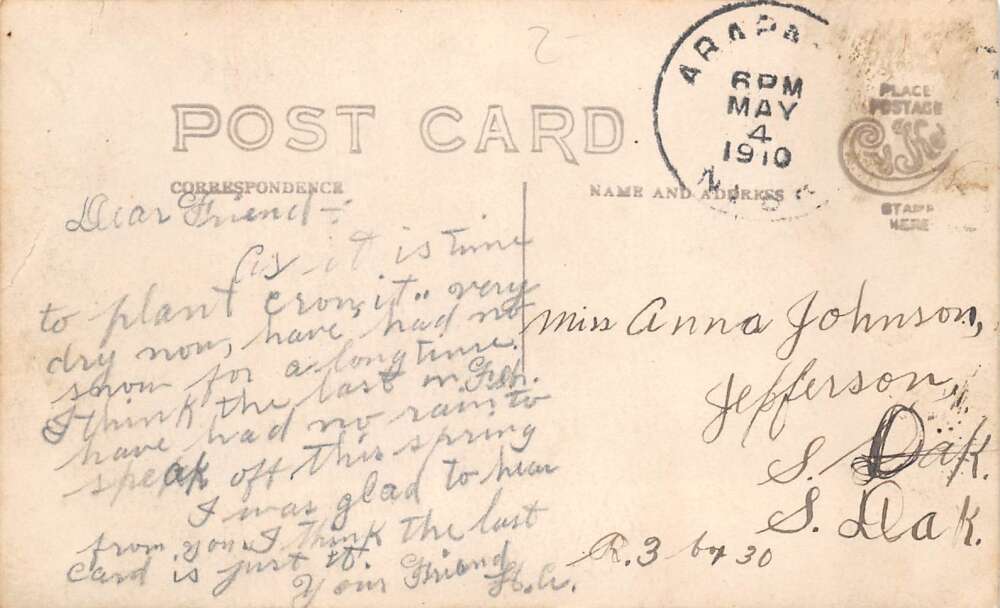 POST CARD
ARAPA
6 PM
MAY
4
1910
PLACE
POSTAGE
STAMP
HERE
CORRESPONDENCE
NAME AND ADDRESS
Dear Friend:-
As it is time
to plant it very
dry now, have had no
snow for a long time.
I think the last in Feb.
have had no rain, to
speak off this spring
I was glad to hear
from you. I think the last
card is just it.
Your Friend
Miss Anna Johnson,
Jefferson,
S. Dak.
S. Dak.
R. 3 box 30